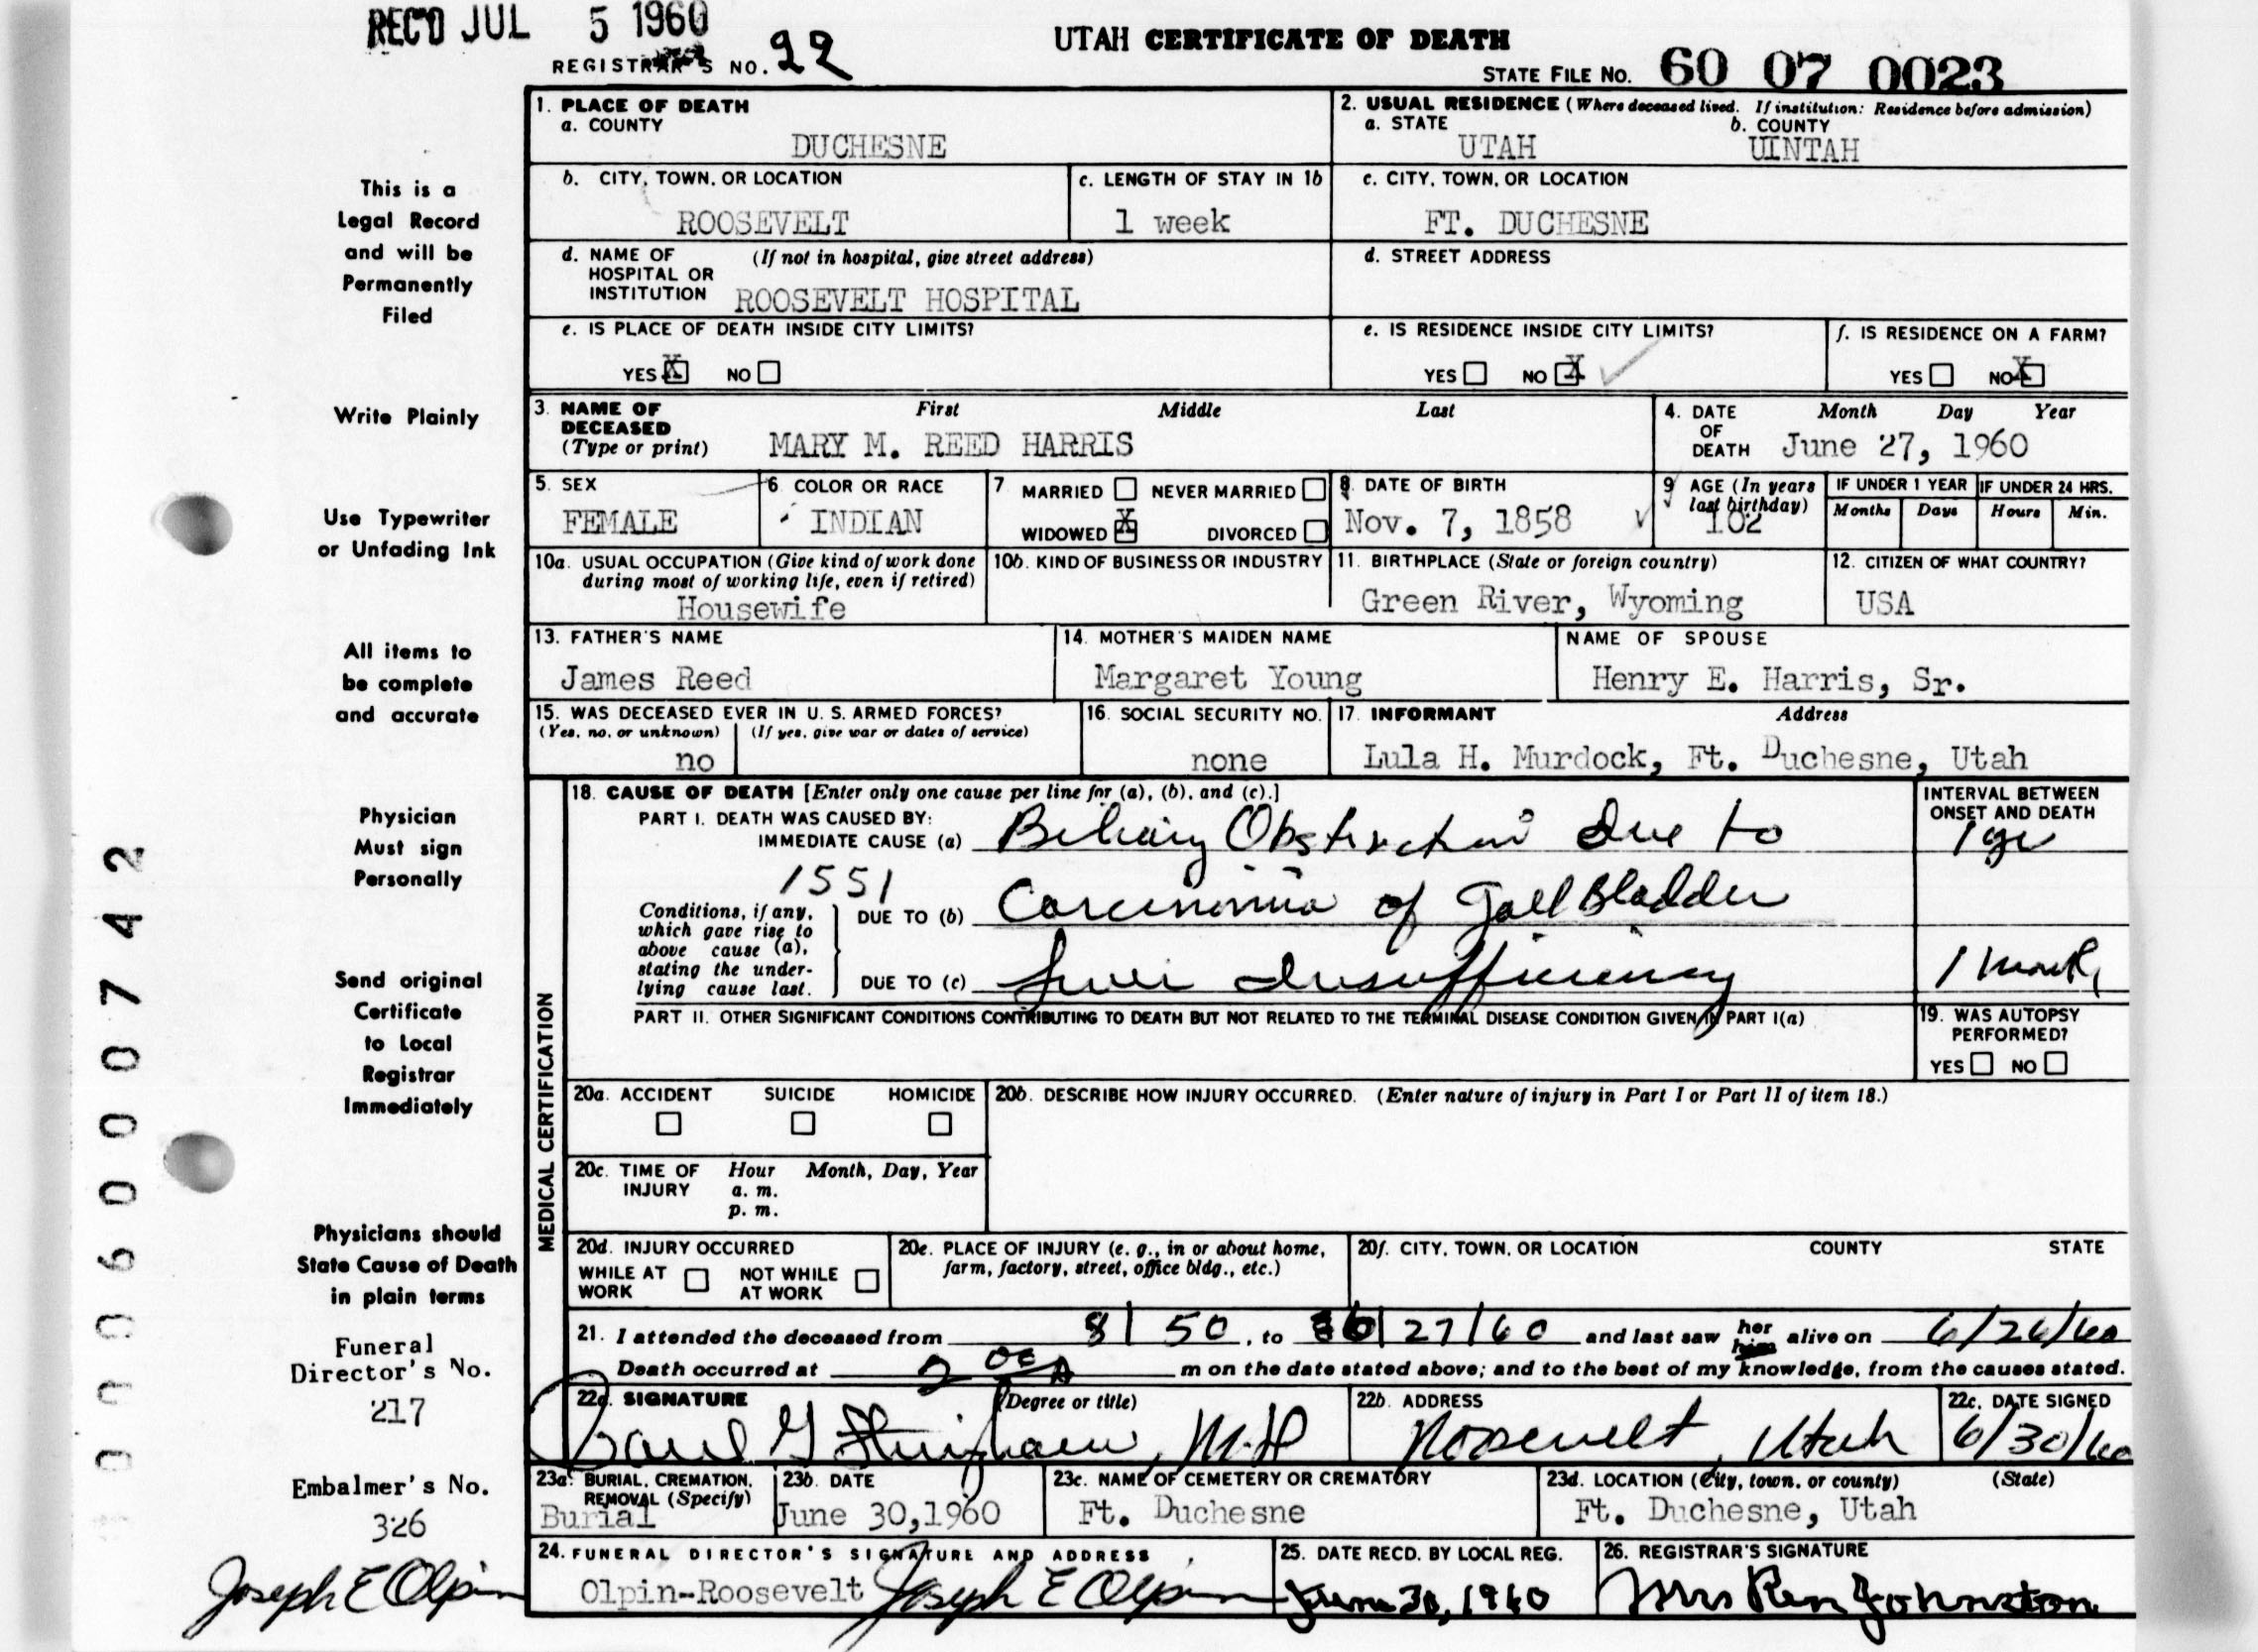 REC'D JUL 5 1960
REGISTRAR'S NO. 22
UTAH CERTIFICATE OF DEATH
STATE FILE NO. 60 07 0023
1. PLACE OF DEATH
a. COUNTY
DUCHESNE
2. USUAL RESIDENCE (Where deceased lived. If institution: Residence before admission)
a. STATE
UTAH
b. COUNTY
UINTAH
b. CITY, TOWN, OR LOCATION
ROOSEVELT
c. LENGTH OF STAY IN 1b
1 week
c. CITY, TOWN, OR LOCATION
FT. DUCHESNE
d. NAME OF HOSPITAL OR INSTITUTION
(If not in hospital, give street address)
ROOSEVELT HOSPITAL
d. STREET ADDRESS
e. IS PLACE OF DEATH INSIDE CITY LIMITS?
YES X NO
e. IS RESIDENCE INSIDE CITY LIMITS?
YES NO X
f. IS RESIDENCE ON A FARM?
YES NO X
3. NAME OF DECEASED
(Type or print)
First Middle Last
MARY M. REED HARRIS
4. DATE OF DEATH
Month Day Year
June 27, 1960
5. SEX
FEMALE
6. COLOR OR RACE
INDIAN
7 MARRIED NEVER MARRIED
WIDOWED X DIVORCED
8. DATE OF BIRTH
Nov. 7, 1858
9 AGE (In years last birthday)
102
IF UNDER 1 YEAR
Months Days
IF UNDER 24 HRS.
Hours Min.
10a. USUAL OCCUPATION (Give kind of work done during most of working life, even if retired)
Housewife
10b. KIND OF BUSINESS OR INDUSTRY
11. BIRTHPLACE (State or foreign country)
Green River, Wyoming
12. CITIZEN OF WHAT COUNTRY?
USA
13. FATHER'S NAME
James Reed
14. MOTHER'S MAIDEN NAME
Margaret Young
NAME OF SPOUSE
Henry E. Harris, Sr.
15. WAS DECEASED EVER IN U. S. ARMED FORCES?
(Yes, no, or unknown) (If yes, give war or dates of service)
no
16. SOCIAL SECURITY NO.
none
17. INFORMANT Address
Lula H. Murdock, Ft. Duchesne, Utah
MEDICAL CERTIFICATION
18. CAUSE OF DEATH [Enter only one cause per line for (a), (b), and (c).]
PART I. DEATH WAS CAUSED BY:
IMMEDIATE CAUSE (a) Biliary Obstruction due to
INTERVAL BETWEEN ONSET AND DEATH
1 yr
1551
Conditions, if any, which gave rise to above cause (a), stating the underlying cause last.
DUE TO (b) Carcinoma of Gall Bladder
DUE TO (c) Liver Insufficiency
1 month
PART II. OTHER SIGNIFICANT CONDITIONS CONTRIBUTING TO DEATH BUT NOT RELATED TO THE TERMINAL DISEASE CONDITION GIVEN IN PART I(a)
19. WAS AUTOPSY PERFORMED?
YES NO
20a. ACCIDENT SUICIDE HOMICIDE
20b. DESCRIBE HOW INJURY OCCURRED. (Enter nature of injury in Part I or Part II of item 18.)
20c. TIME OF INJURY
Hour Month, Day, Year
a. m.
p. m.
20d. INJURY OCCURRED
WHILE AT WORK NOT WHILE AT WORK
20e. PLACE OF INJURY (e. g., in or about home, farm, factory, street, office bldg., etc.)
20f. CITY, TOWN, OR LOCATION COUNTY STATE
21. I attended the deceased from 8/ 50, to 6/27/60 and last saw her him alive on 6/26/60
Death occurred at 2 00 A m on the date stated above; and to the best of my knowledge, from the causes stated.
22a. SIGNATURE (Degree or title)
Paul G Stringham, M.D
22b. ADDRESS
Roosevelt, Utah
22c. DATE SIGNED
6/30/60
23a. BURIAL, CREMATION, REMOVAL (Specify)
Burial
23b. DATE
June 30,1960
23c. NAME OF CEMETERY OR CREMATORY
Ft. Duchesne
23d. LOCATION (City, town, or county) (State)
Ft. Duchesne, Utah
24. FUNERAL DIRECTOR'S SIGNATURE AND ADDRESS
Olpin-Roosevelt Joseph E Olpin
25. DATE RECD. BY LOCAL REG.
June 30, 1960
26. REGISTRAR'S SIGNATURE
Mrs Ren Johnston
This is a
Legal Record
and will be
Permanently
Filed
Write Plainly
Use Typewriter
or Unfading Ink
All items to
be complete
and accurate
Physician
Must sign
Personally
Send original
Certificate
to Local
Registrar
Immediately
Physicians should
State Cause of Death
in plain terms
Funeral
Director's No.
217
Embalmer's No.
326
Joseph E Olpin
000600742